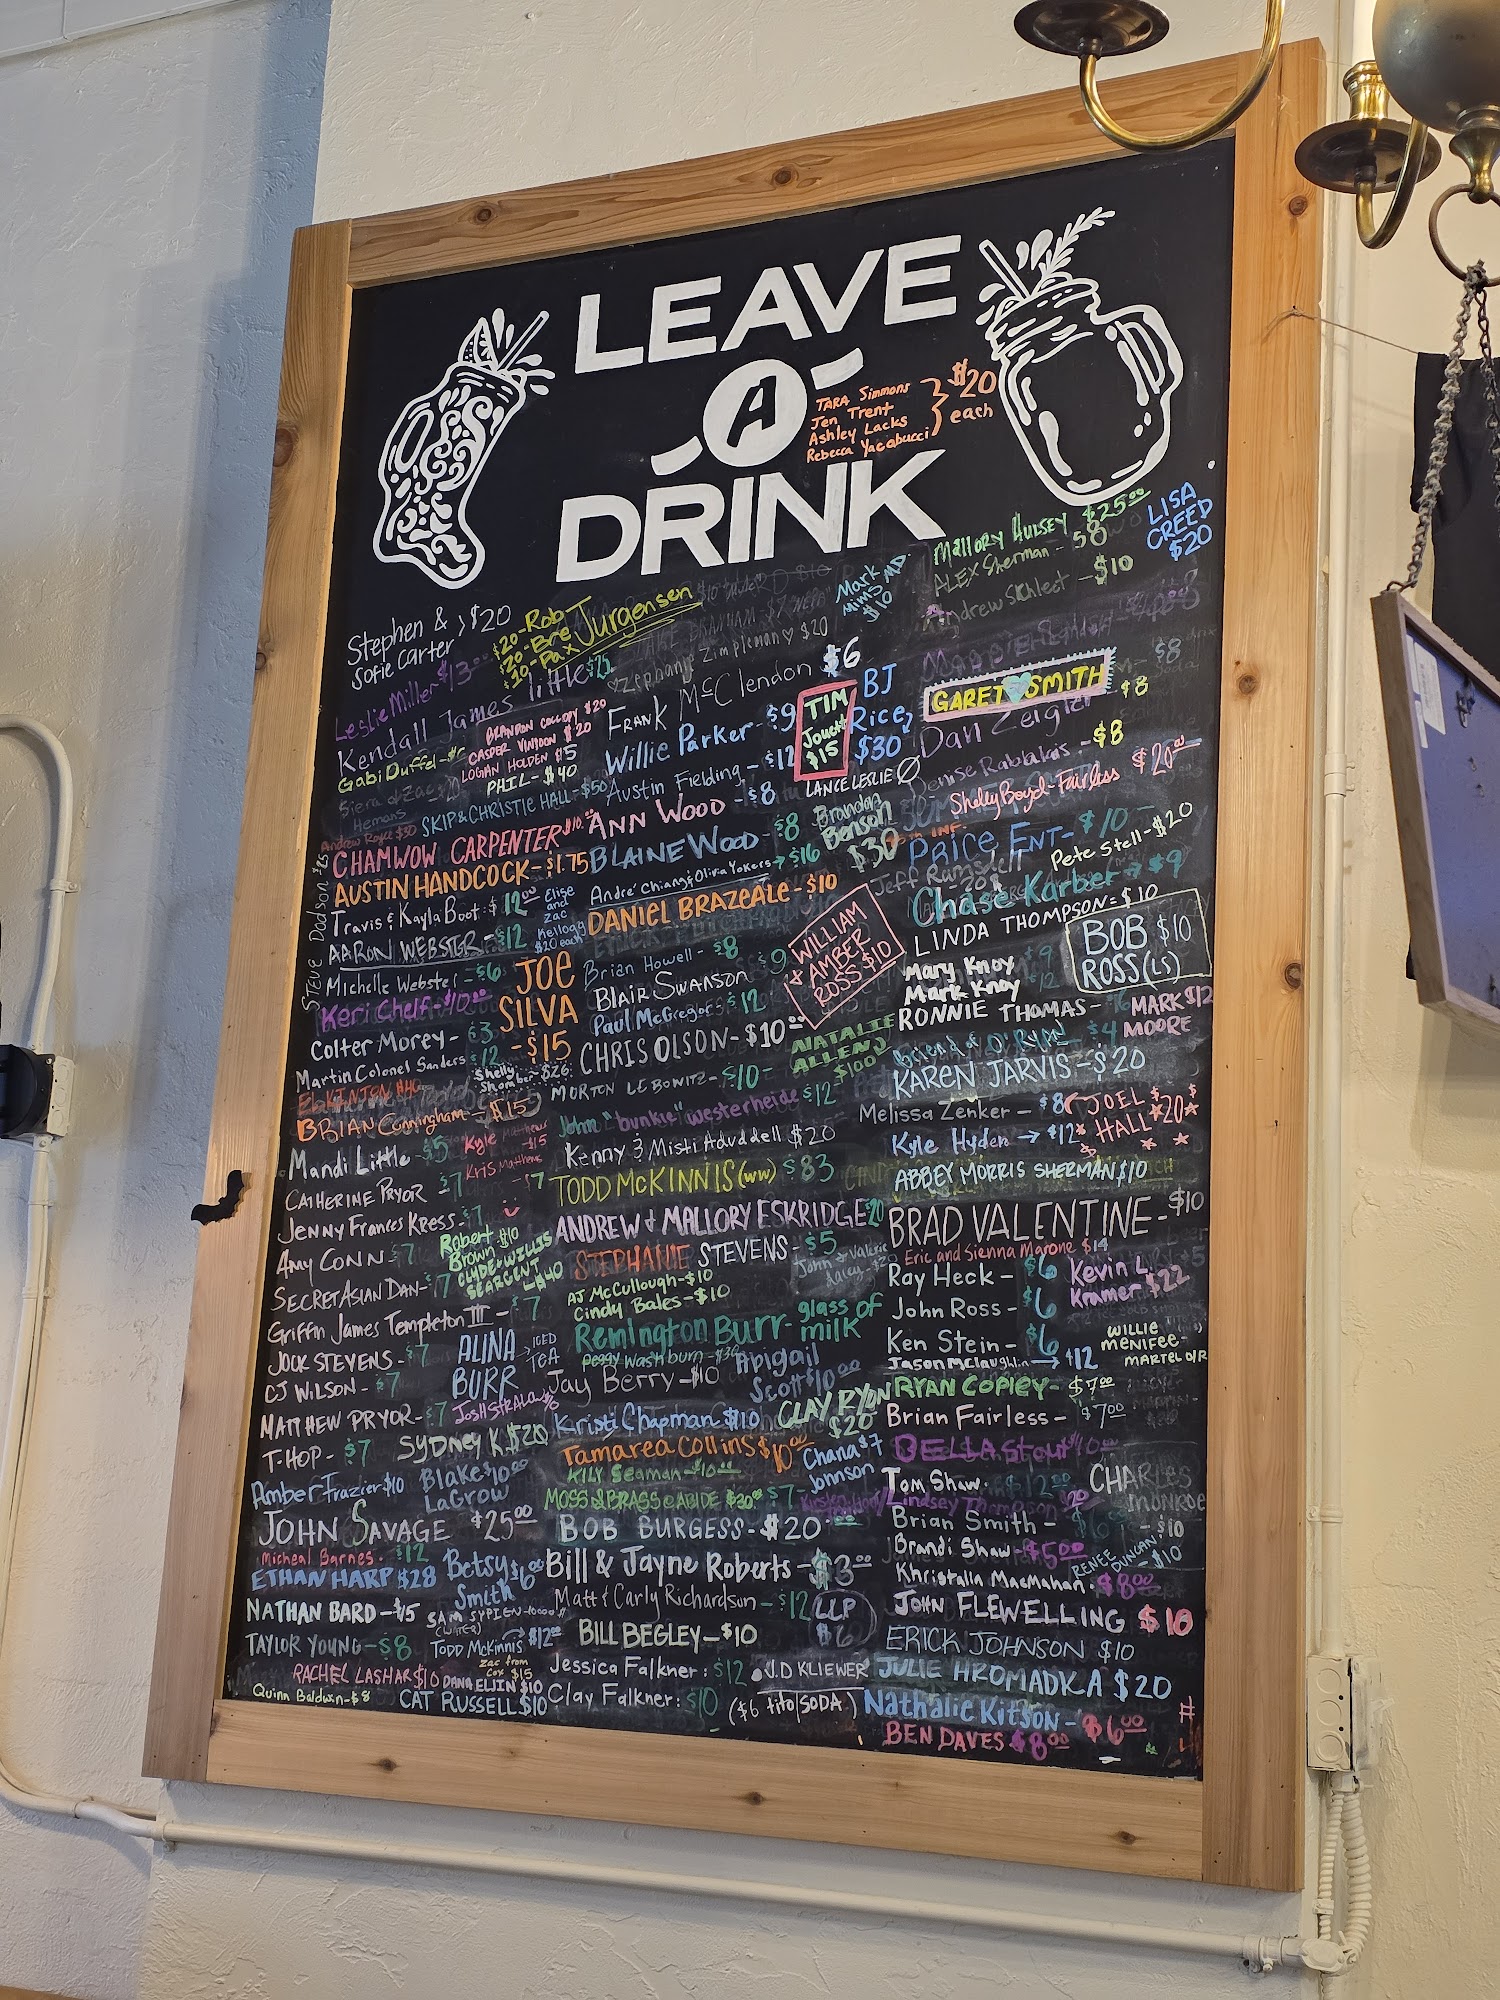 LEAVE
A
DRINK
TARA Simmons
Jen Trent
Ashley Lacks
Rebecca Yacabucci
$20
each
Mallory Hulsey $25.00
ALEX Sherman - $8
Andrew Schlect - $10
LISA
CREED
$20
Mark
Mims MD
$10
Stephen & > $20
Sofie Carter
$20-Rob
$20-Bre
$20-Pax
Jurgensen
Zephanye Zimpleman ♡ $20
Leslie Miller $13
little $25
Kendall James
Gabi Duffel-
BRANDON COLLOPY $20
CASPER $20
LOGAN HOLDEN $5
PHIL - $40
SKIP & CHRISTIE HALL-$50
Hemans
Andrew Royce $30
CHAMWOW CARPENTER $10.
AUSTIN HANDCOCK-$1.75
Steve Dodson
Travis & Kayla Boot: $12.00
Elise
and
Zac
Kellogg
$20 each
AARON WEBSTER - $12
Michelle Webster - $6
Keri Chelf-$10
JOE
SILVA
-$15
Colter Morey - $3
Martin Colonel Sanders $12
Shelly
$26
BRIAN Cunningham - $15
Mandi Little - $5
Kyle Matthews
$15
Kris Matthews
CATHERINE PRYOR - $7
Jenny Frances Kress - $7
Amy CONN - $7
Robert $10
Brown
CLYDE & WILLIS
SEARGENT
$40
SECRET ASIAN DAN- $7
Griffin James Templeton III - $7
JOCK STEVENS - $7
ALINA
BURR
→ ICED
TEA
CJ WILSON - $7
MATTHEW PRYOR- $7
T-HOP - $7
SYDNEY K. $20
Amber Frazier $10
Blake $10.00
LaGrow
JOHN SAVAGE $25.00
Micheal Barnes. $12
ETHAN HARP $28
Betsy $6
Smith
NATHAN BARD - $15
(WATER)
TAYLOR YOUNG - $8
Todd McKinnis $12.00
zac from
Cox $15
RACHEL LASHAR $10
DANA ELJIN $10
Quinn Baldwin - $8
CAT RUSSELL $10
FRANK McClendon $6
Willie Parker - $9
Austin Fielding - $12
TIM
Jouett
$15
BJ
Rice
$30
LANCE LESLIE
ANN WOOD - $8
BLAINE WOOD - $8
Brandon
Benson
$30
André Chiang & Olivia Yokers → $16
DANIEL BRAZEALE - $10
Brian Howell - $8
Blair Swanson $9
Paul McGregor $12
WILLIAM
& AMBER
ROSS $10
CHRIS OLSON - $10
NATALIE
ALLEN
$100
MORTON LEBOWITZ - $10-
John "bunkie" Westerheide $12
Kenny & Misti Advddell $20
TODD McKINNIS (WW) $83
ANDREW & MALLORY ESKRIDGE $20
STEPHANIE STEVENS - $5
John & Valerie
AJ McCullough-$10
Cindy Bales-$10
Remington Burr- glass of
milk
Peggy Washburn - $30
Jay Berry - $10
Abigail
Scott $10.00
Kristi Chapman $10
CLAY RYON
$20
Tamarea Collins $10.00
Chana $7
Johnson
KILY Seaman - $10
MOSS & BRASS $30
BOB BURGESS - $20
Bill & Jayne Roberts - $3.00
Matt & Carly Richardson - $12
LLP
$6
BILL BEGLEY - $10
Jessica Falkner: $12
J.D KLIEWER
Clay Falkner: $10
($6 tito/SODA)
GARET SMITH
$8
$8
Dan Zeigler
Denise Rabalais - $8
Shelby Boyd-Fairless $20
PRICE ENT- $10
Jeff Rumsfelt
Pete Stell - $20
Chase Karber → $9
LINDA THOMPSON = $10
BOB $10
ROSS (LS)
Mary Knoy $9
Mark Knoy $12
RONNIE THOMAS-
MARK $12
MOORE
$4
KAREN JARVIS - $20
Melissa Zenker - $8
JOEL
HALL
$20
Kyle Hyden → $12
ABBEY MORRIS SHERMAN $10
BRAD VALENTINE - $10
Eric and Sienna Marone $14
Ray Heck - $6
Kevin L.
Kramer $22
John Ross - $6
Ken Stein - $6
WILLIE
MENIFEE -
Jason McLaughlin → $12
RYAN COPLEY - $7.00
Brian Fairless - $7.00
BELLA Stout $10
Tom Shaw. $12
CHARLES
MONROE
- $10
Lindsey Thompson $20
Brian Smith - $6
Brandi Shaw - $5.00
RENEE
DUNCAN
- $10
Khristalla MacMahan. $8.00
JOHN FLEWELLING $10
ERICK JOHNSON $10
JULIE HROMADKA $20
Nathalie Kitson - $6.00
BEN DAVES $8.00